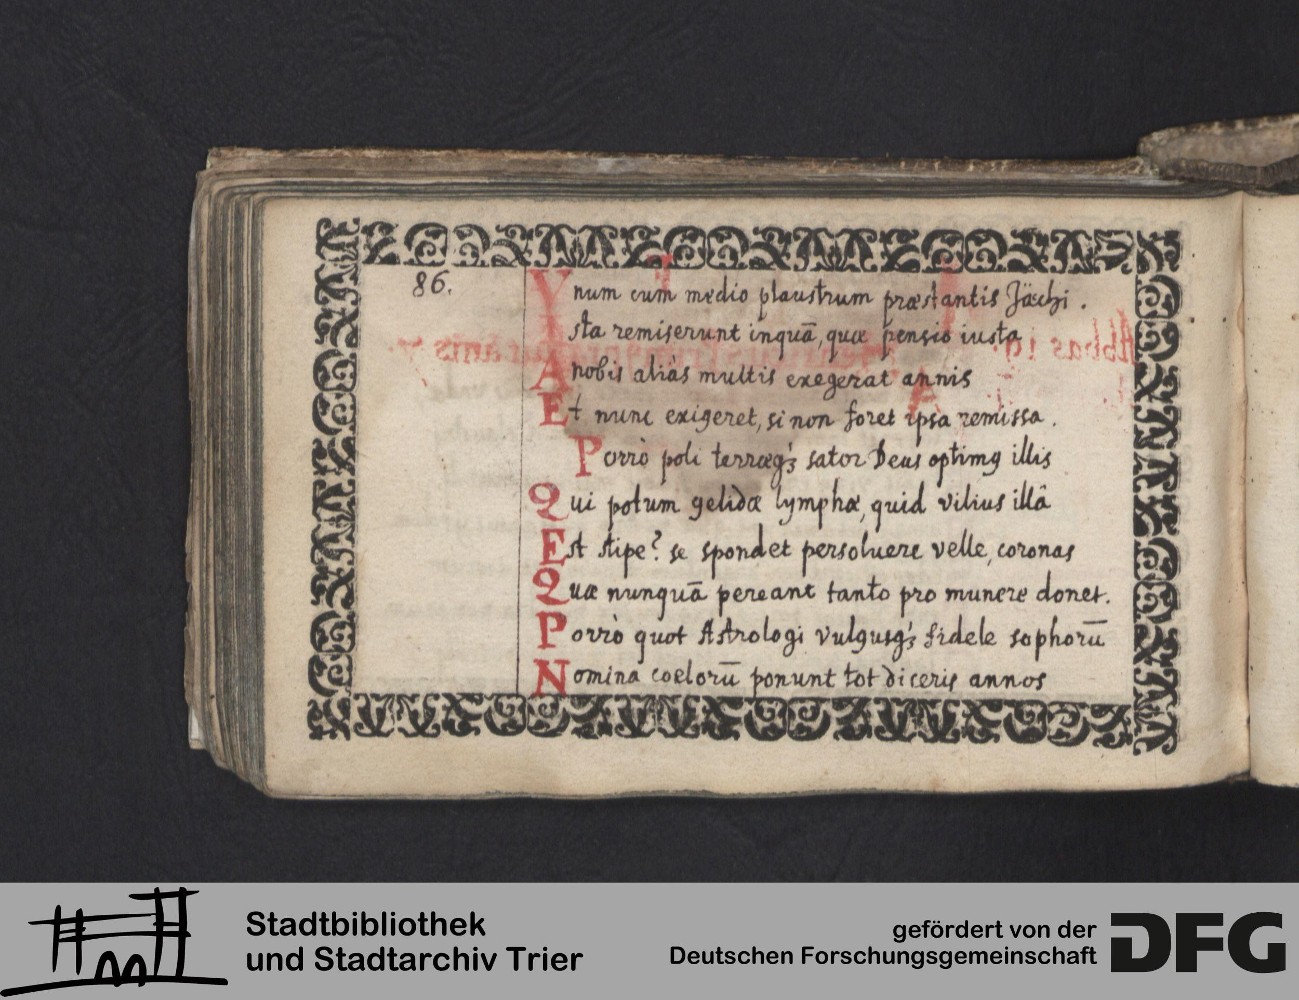 86.
Vnum cum medio plaustrum præstantis Jäcchi.
Ista remiserunt inquā, quæ pensio iusta
A nobis aliàs multis exegerat annis
Et nunc exigeret, si non foret ipsa remissa.
Porrò poli terræqꝫ sator Deus optimꝰ illis
Qui potum gelidæ lymphæ, quid vilius illâ
Est stipe? se spondet persoluere velle, coronas
Quæ nunquā pereant tanto pro munere donet.
Porrò quot Astrologi vulgusqꝫ fidele sophorū
Nomina coelorū ponunt tot diceris annos
Stadtbibliothek
und Stadtarchiv Trier
gefördert von der
Deutschen Forschungsgemeinschaft
DFG